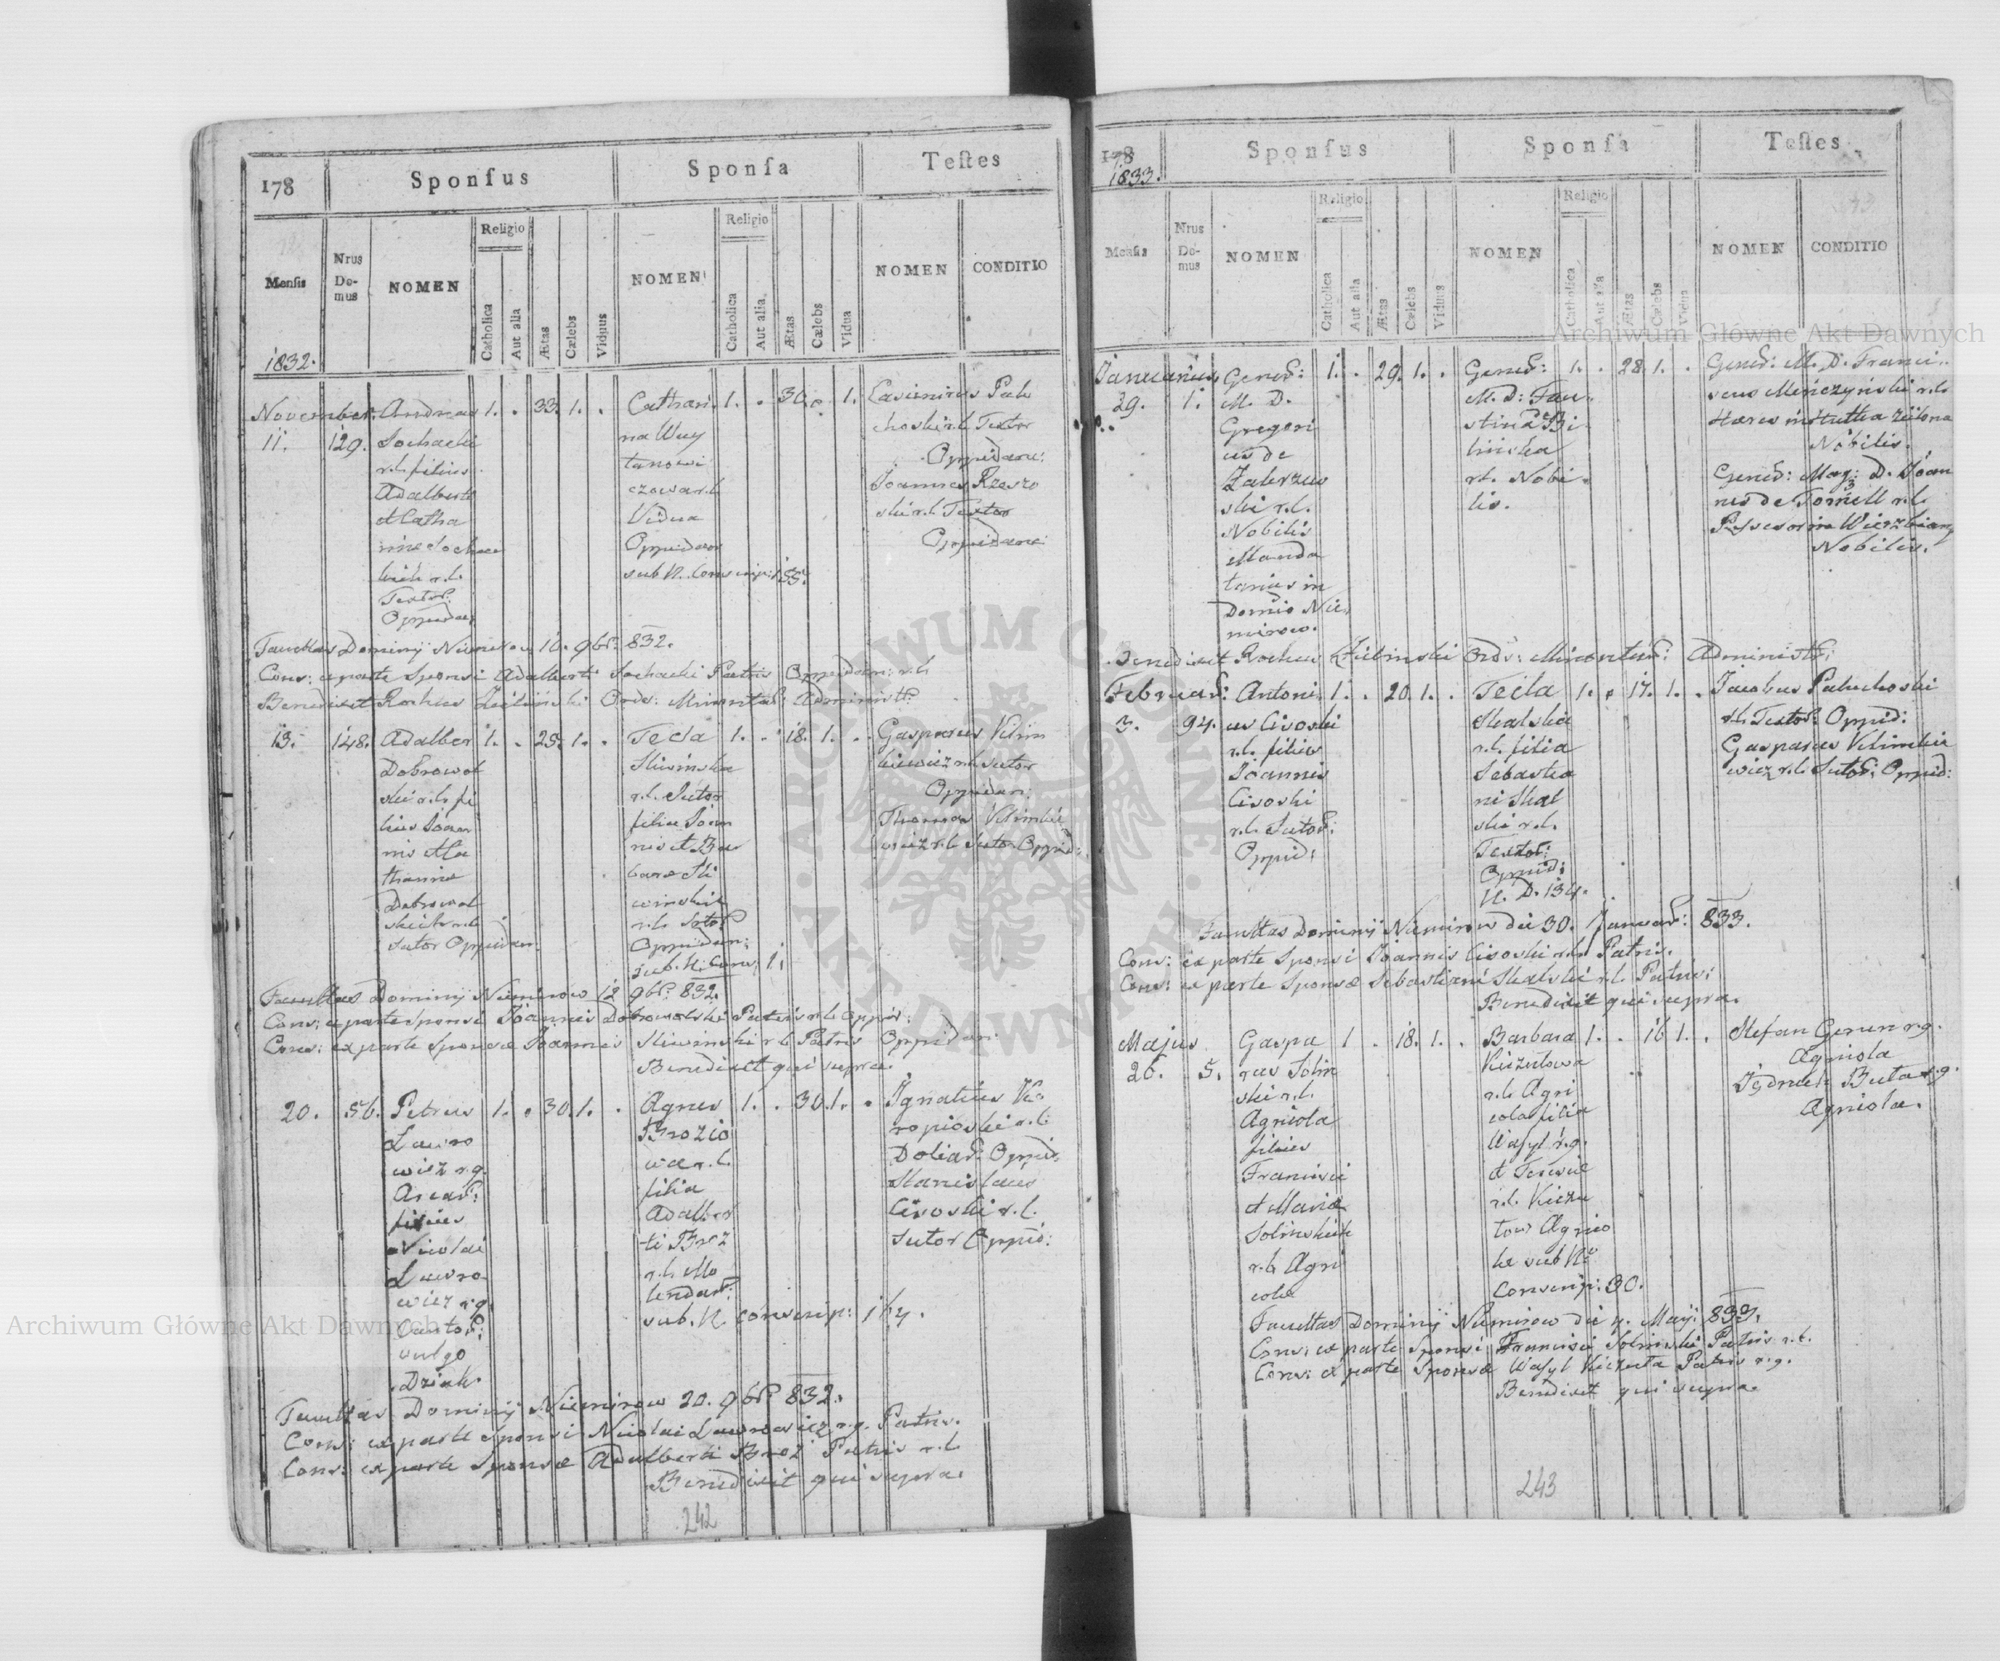 178
Sponſus
Sponſa
Teſtes
Menſis
Nrus Domus
NOMEN
Religio
Catholica
Aut alia
Ætas
Cælebs
Viduus
NOMEN
Religio
Catholica
Aut alia
Ætas
Cælebs
Vidua
NOMEN
CONDITIO
1832.
November.
11.
129.
Andreas
Sochacki
r.l. filius
Adalberti
et Catha
rinæ Sochac
kich r.l.
Textor:
Oppidan:
1. . 33. 1. .
Cathari
na Woy
tanowi
czowa r.l.
Vidua
Oppidan
sub N. Conscrip: 155.
1. . 30. . 1.
Casimirus Palu
choski r.l. Textor
Oppidan:
Joannes Rzeszo
ski r.l. Textor
Oppidan:
Facultas Dominij Niemirow 10. 9br. 832.
Cons: ex parte Sponsi Adalberti Sochacki Patris Oppidan: r.l.
Benedixit Rochus Zieliński Ord: Minorit: Administr:
13.
148.
Adalber
Dobrowol
ski r.l. fi
lius Joan
nis et Ca
tharinæ
Dobrowol
skich r.l.
Sutor Oppidan.
1. . 25. 1. .
Tecla
Sliwinska
r.l. Sutor
filia Joan
nis et Bar
baræ Sli
winskich
r.l. Sutor
Oppidan:
sub. N. Cons: 1.
1. . 18. 1. .
Gasparus Klim
kiewicz r.l. Sutor
Oppidan:
Thomas Klimkie
wicz r.l. Sutor Oppid:
Facultas Dominij Niemirow 12 9br. 832.
Cons: ex parte Sponsi Joannis Dobrowolski Patris r.l. Oppid:
Cons: ex parte Sponsæ Joannis Sliwinski r.l. Patris Oppidan:
Benedixit qui supra.
20.
56.
Petrus
Lawro
wicz r.g.
filius
Nicolai
Lawro
wicz r.g.
Cantor:
vulgo
Dziak.
1. . 30. 1. .
Agnes
Brozio
wa r.l.
filia
Adalber
ti Broz
r.l. Mo
lendar:
sub. N. conscrip: 164.
1. . 30. 1. .
Ignatius Ka
ropioski r.l.
Doliar: Oppid:
Stanislaus
Cisoski r.l.
Sutor Oppid:
Facultas Dominij Niemirow 20. 9br. 832.
Cons: ex parte Sponsi Nicolai Lawrowicz r.g. Patris.
Cons: ex parte Sponsæ Adalberti Broz Patris r.l.
Benedixit qui supra.
242
178
1833.
Sponſus
Sponſa
Teſtes
Menſis
Nrus Domus
NOMEN
Religio
Catholica
Aut alia
Ætas
Cælebs
Viduus
NOMEN
Religio
Catholica
Aut alia
Ætas
Cælebs
Vidua
NOMEN
CONDITIO
Januarius
29.
1.
Gener:
M. D.
Gregori
us de
Zakrzew
ski r.l.
Nobilis
Manda
tarius in
Domio Nie
mirow.
1. . 29. 1. .
Gener:
M. D. Fau
stina Bi
linska
r.l. Nobi
lis.
1. . 28. 1. .
Gener: M. D. Franci
scus r.l.
Nobilis.
Gener: Mag: D. Joan
nes de Tornell r.l.
Possessor in Wierzbiany
Nobilis.
Benedixit Rochus Zielinski Ord: Minorit: Administr:
Februar:
3.
94.
Antoni
us Cisoski
r.l. filius
Joannis
Cisoski
r.l. Sutor:
Oppid:
1. . 20. 1. .
Tecla
Skalska
r.l. filia
Sebastia
ni Skal
ski r.l.
Textor:
Oppid:
N. D. 134.
1. . 17. 1. .
Jacobus Paluchoski
r.l. Textor: Oppid:
Gasparus Klimkie
wicz r.l. Sutor: Oppid:
Facultas Dominij Niemirow die 30. Januar: 833.
Cons: ex parte Sponsi Joannis Cisoski r.l. Patris.
Cons: ex parte Sponsæ Sebastiani Skalski r.l. Patris:
Benedixit qui supra.
Majus
26.
5.
Gaspa
rus Solin
ski r.l.
Agricola
filius
Francisci
et Mariæ
Solinskich
r.l. Agri
colæ
1 . 18. 1. .
Barbara
Kiczulowa
r.l. Agri
cola filia
Wasyl r.g.
et Teresiæ
r.l. Kiczu
low Agrico
læ sub No
Conscrip: 30.
1. . 16 1. .
Stefan r.g.
Agricola
Buta r.g.
Agricola.
Facultas Dominij Niemirow die 4. Maij. 833.
Cons: ex parte Sponsi Francisci Solinski Patris r.l.
Cons: ex parte Sponsæ Wasyl Kiczula Patris r.g.
Benedixit qui supra.
243
Archiwum Główne Akt Dawnych
Archiwum Główne Akt Dawnych
ARCHIWUM GŁÓWNE AKT DAWNYCH